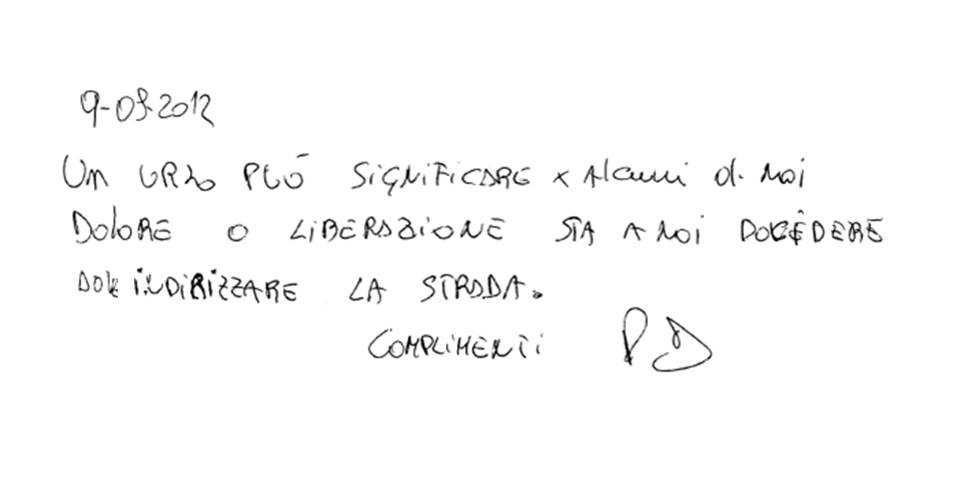 9-09-2012
Un URLO PUÓ SiGNiFiCARE x Alcuni di noi
DoloRE O LiBERAZiONE STA A noi
iNDiRiZZARE LA STRADA.
COMPLiMENTi